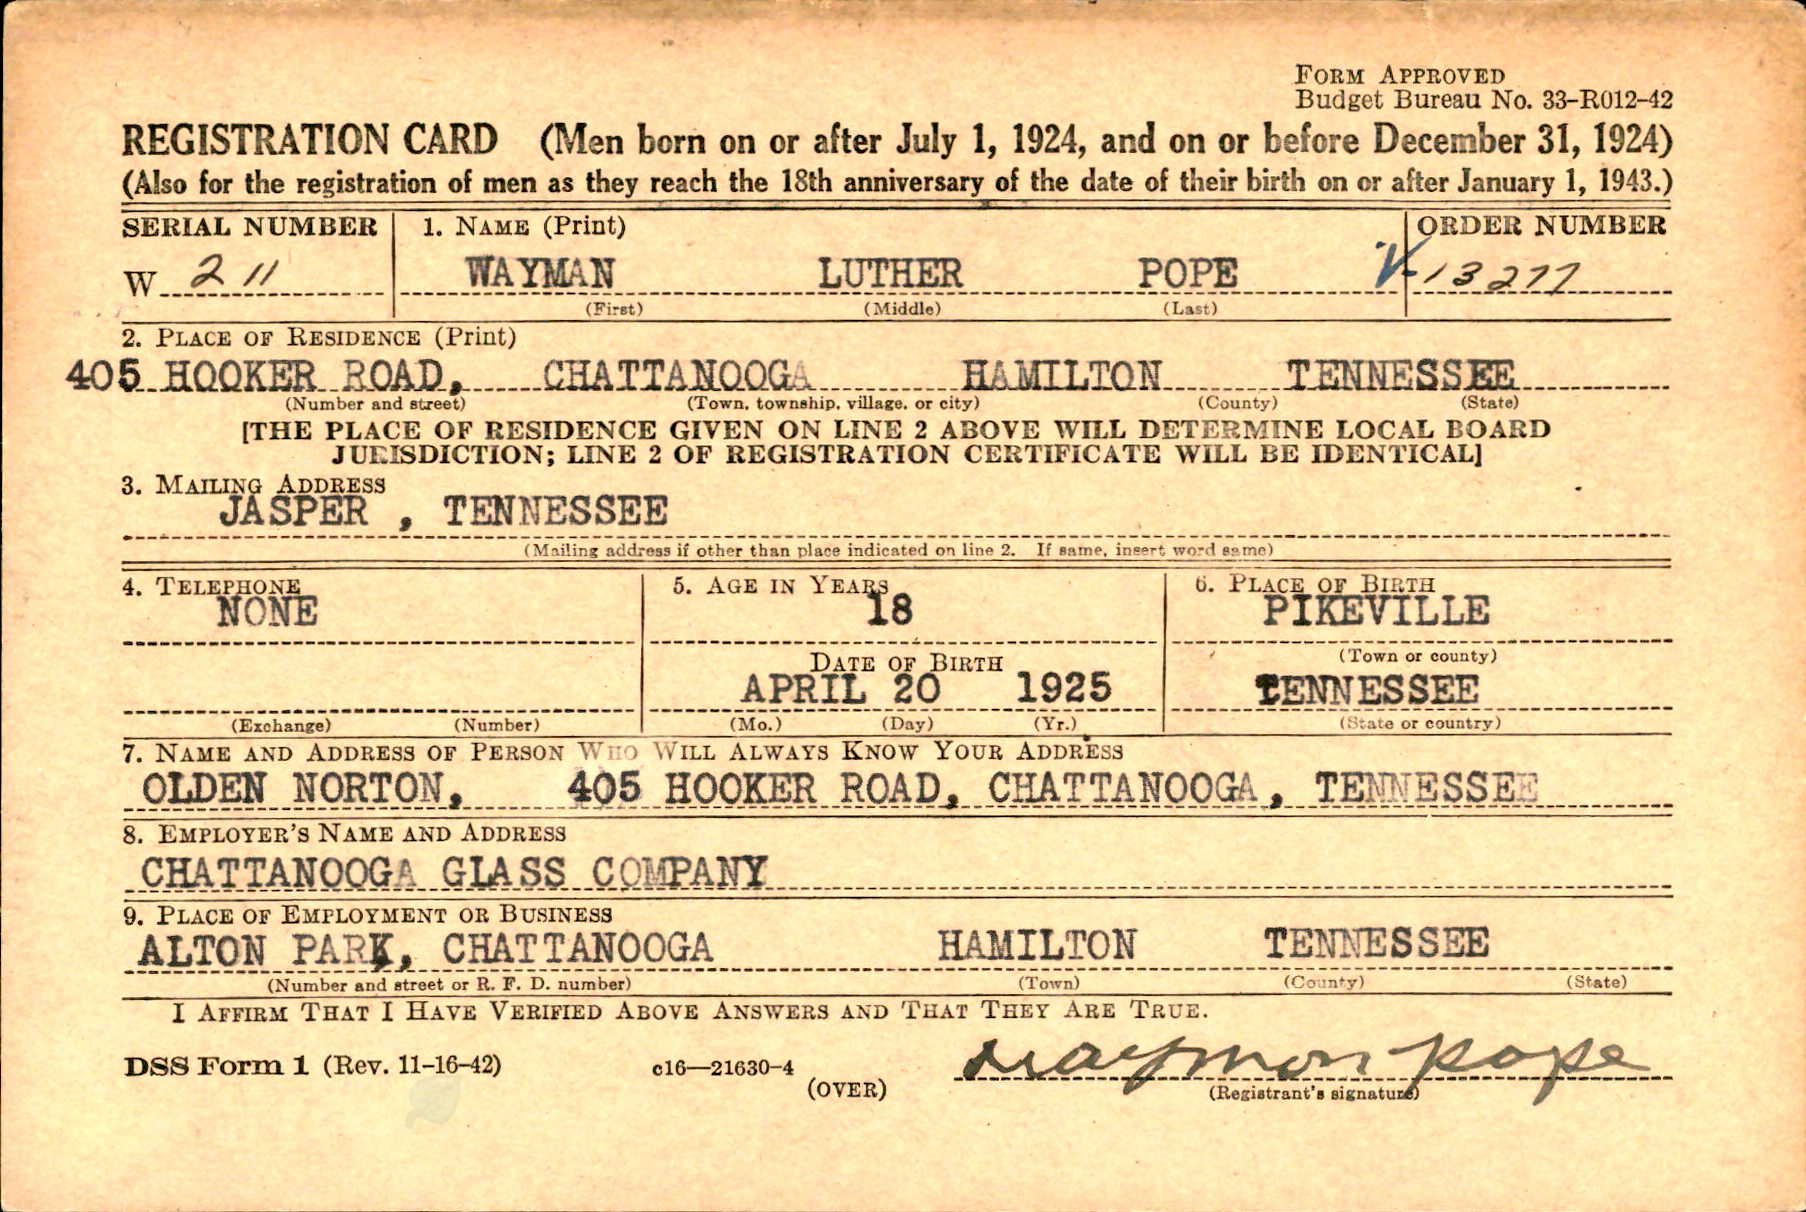 FORM APPROVED
Budget Bureau No. 33-R012-42
REGISTRATION CARD (Men born on or after July 1, 1924, and on or before December 31, 1924)
(Also for the registration of men as they reach the 18th anniversary of the date of their birth on or after January 1, 1943.)
SERIAL NUMBER 1. NAME (Print) ORDER NUMBER
W 211 WAYMAN LUTHER POPE 13277
(First) (Middle) (Last)
2. PLACE OF RESIDENCE (Print)
405 HOOKER ROAD, CHATTANOOGA HAMILTON TENNESSEE
(Number and street) (Town, township, village, or city) (County) (State)
[THE PLACE OF RESIDENCE GIVEN ON LINE 2 ABOVE WILL DETERMINE LOCAL BOARD
JURISDICTION; LINE 2 OF REGISTRATION CERTIFICATE WILL BE IDENTICAL]
3. MAILING ADDRESS
JASPER , TENNESSEE
(Mailing address if other than place indicated on line 2. If same, insert word same)
4. TELEPHONE 5. AGE IN YEARS 6. PLACE OF BIRTH
NONE 18 PIKEVILLE
DATE OF BIRTH (Town or county)
APRIL 20 1925 TENNESSEE
(Exchange) (Number) (Mo.) (Day) (Yr.) (State or country)
7. NAME AND ADDRESS OF PERSON WHO WILL ALWAYS KNOW YOUR ADDRESS
OLDEN NORTON, 405 HOOKER ROAD, CHATTANOOGA, TENNESSEE
8. EMPLOYER'S NAME AND ADDRESS
CHATTANOOGA GLASS COMPANY
9. PLACE OF EMPLOYMENT OR BUSINESS
ALTON PARK, CHATTANOOGA HAMILTON TENNESSEE
(Number and street or R. F. D. number) (Town) (County) (State)
I AFFIRM THAT I HAVE VERIFIED ABOVE ANSWERS AND THAT THEY ARE TRUE.
DSS Form 1 (Rev. 11-16-42) c16—21630-4 Waymon Pope
(OVER) (Registrant's signature)